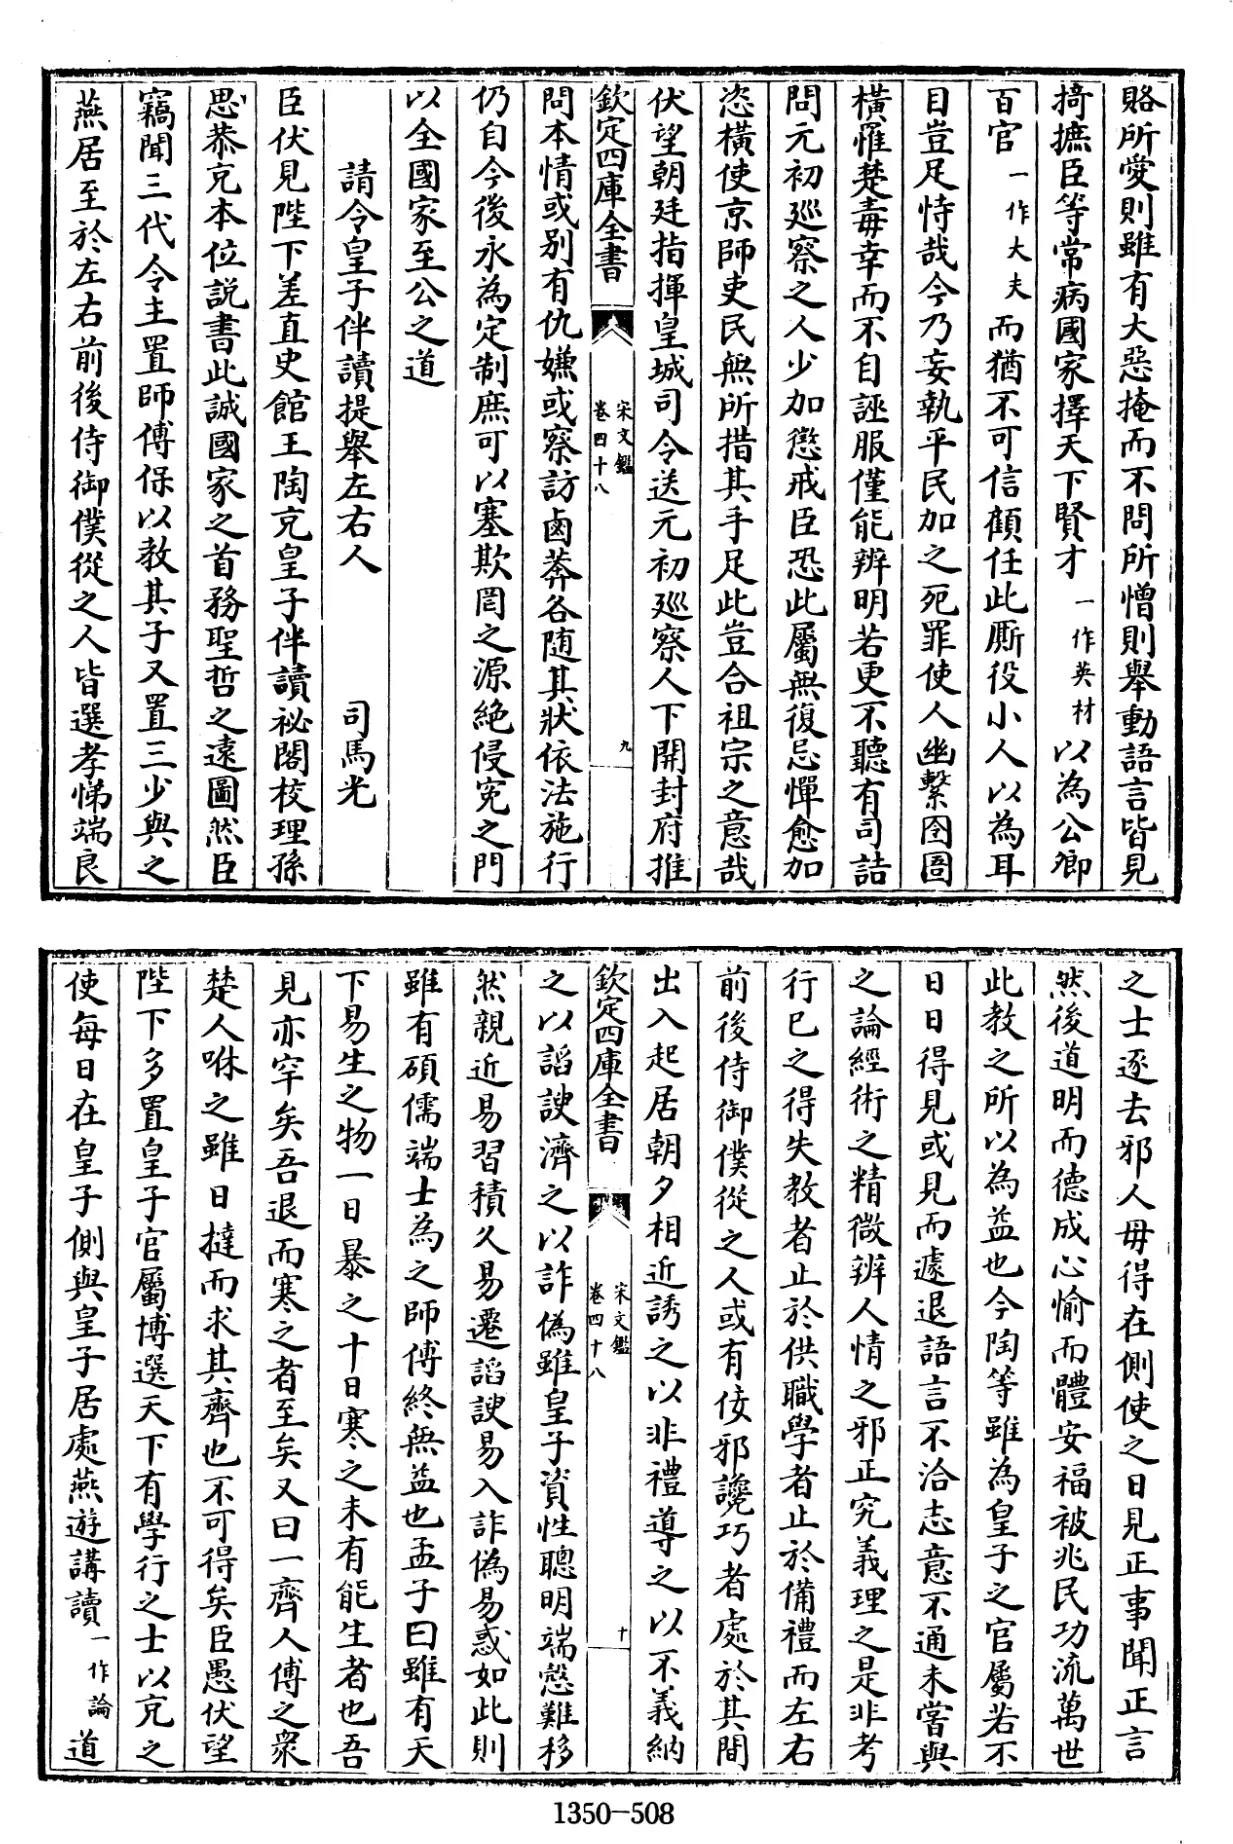 賂所愛則雖有大惡掩而不問所憎則舉動語言皆見
掎摭臣等常病國家擇天下賢才一作英材以為公卿
百官一作大夫而猶不可信顧任此厮役小人以為耳
目豈足恃哉今乃妄執平民加之死罪使人幽繫囹圄
横罹楚毒幸而不自誣服僅能辨明若更不聽有司詰
問元初廵察之人少加懲戒臣恐此屬無復忌憚愈加
恣横使京師吏民無所措其手足此豈合祖宗之意哉
伏望朝廷指揮皇城司令送元初廵察人下開封府推
欽定四庫全書
宋文鑑
卷四十八
九
問本情或别有仇嫌或察訪鹵莽各随其狀依法施行
仍自今後永為定制庶可以塞欺罔之源絶侵寃之門
以全國家至公之道
請令皇子伴讀提舉左右人
司馬光
臣伏見陛下差直史館王陶充皇子伴讀祕閣校理孫
思恭充本位説書此誠國家之首務聖哲之遠圖然臣
竊聞三代令主置師傅保以教其子又置三少與之
燕居至於左右前後侍御僕從之人皆選孝悌端良
之士逐去邪人毋得在側使之日見正事聞正言
然後道明而德成心愉而體安福被兆民功流萬世
此教之所以為益也今陶等雖為皇子之官屬若不
日日得見或見而遽退語言不洽志意不通未嘗與
之論經術之精微辨人情之邪正究義理之是非考
行已之得失教者止於供職學者止於備禮而左右
前後侍御僕從之人或有佞邪讒巧者處於其間
出入起居朝夕相近誘之以非禮導之以不義納
欽定四庫全書
宋文鑑
卷四十八
十
之以謟諛濟之以詐偽雖皇子資性聰明端慤難移
然親近易習積久易遷謟諛易入詐偽易惑如此則
雖有碩儒端士為之師傅終無益也孟子曰雖有天
下易生之物一日暴之十日寒之未有能生者也吾
見亦罕矣吾退而寒之者至矣又曰一齊人傅之衆
楚人咻之雖日撻而求其齊也不可得矣臣愚伏望
陛下多置皇子官屬博選天下有學行之士以充之
使每日在皇子側與皇子居處燕遊講讀一作論道
1350-508